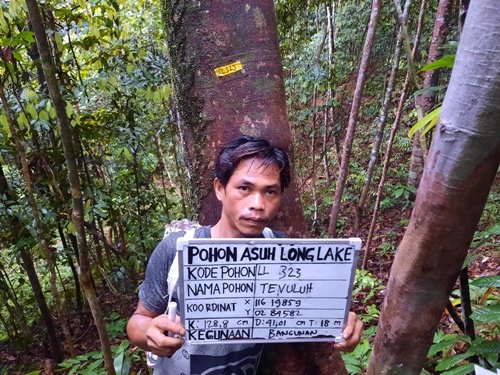 POHON ASUH LONG LAKE
KODE POHON LL 323
NAMA POHON TENULUH
KOORDINAT X 116 19859
Y 02 84582
K: 128,8 cm D: 41,01 cm T: 18 m
KEGUNAAN BANGUNAN